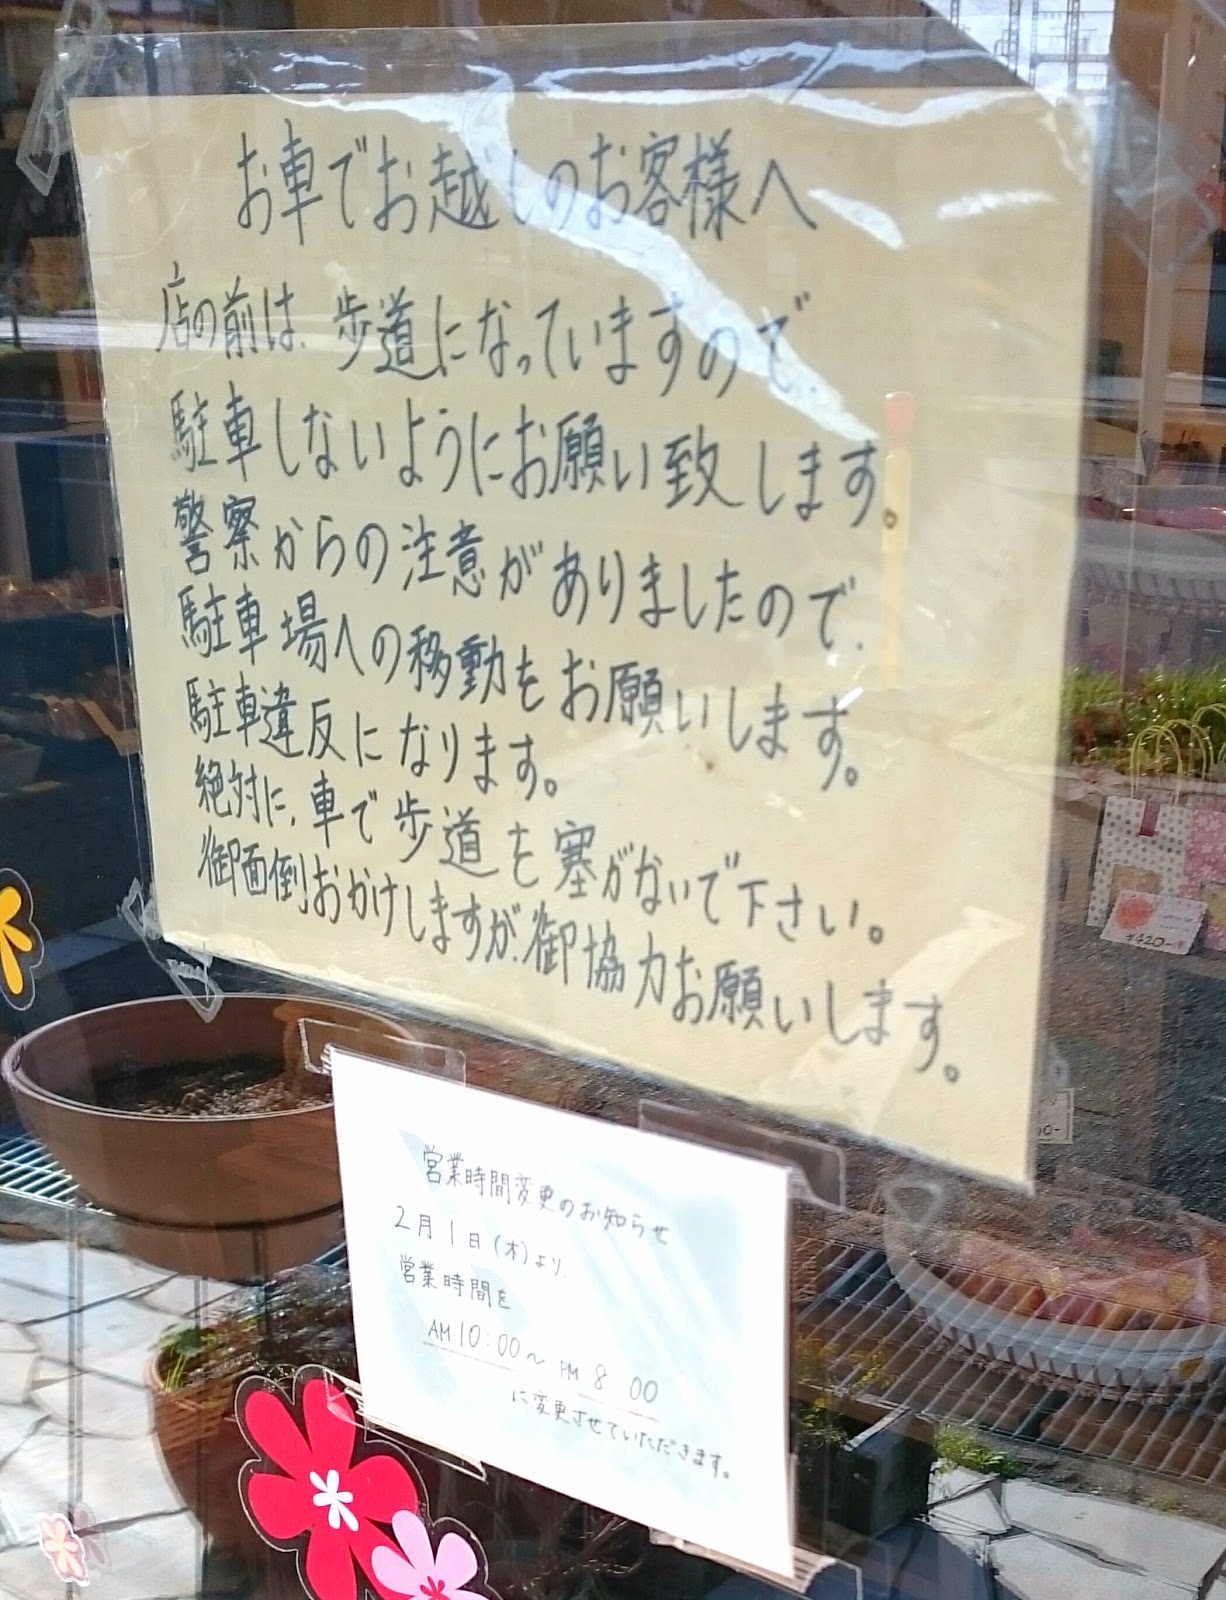 お車でお越しのお客様へ
店の前は、歩道になっていますので、
駐車しないようにお願い致します。
警察からの注意がありましたので、
駐車場への移動をお願いします。
駐車違反になります。
絶対に、車で歩道を塞がないで下さい。
御面倒おかけしますが、御協力お願いします。
営業時間変更のお知らせ
2月1日(木)より、
営業時間を
AM10:00~PM 8 00
に変更させていただきます。
¥420-